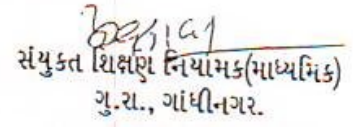 સંયુકત શિક્ષણ નિયામક(માધ્યમિક)
ગુ.રા., ગાંધીનગર.